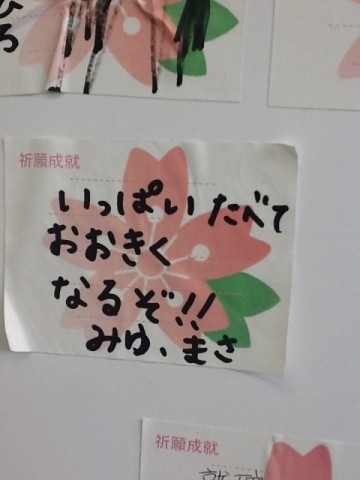 ひろ
祈願成就
いっぱいたべて
おおきく
なるぞ!!
みゆ、まさ
祈願成就